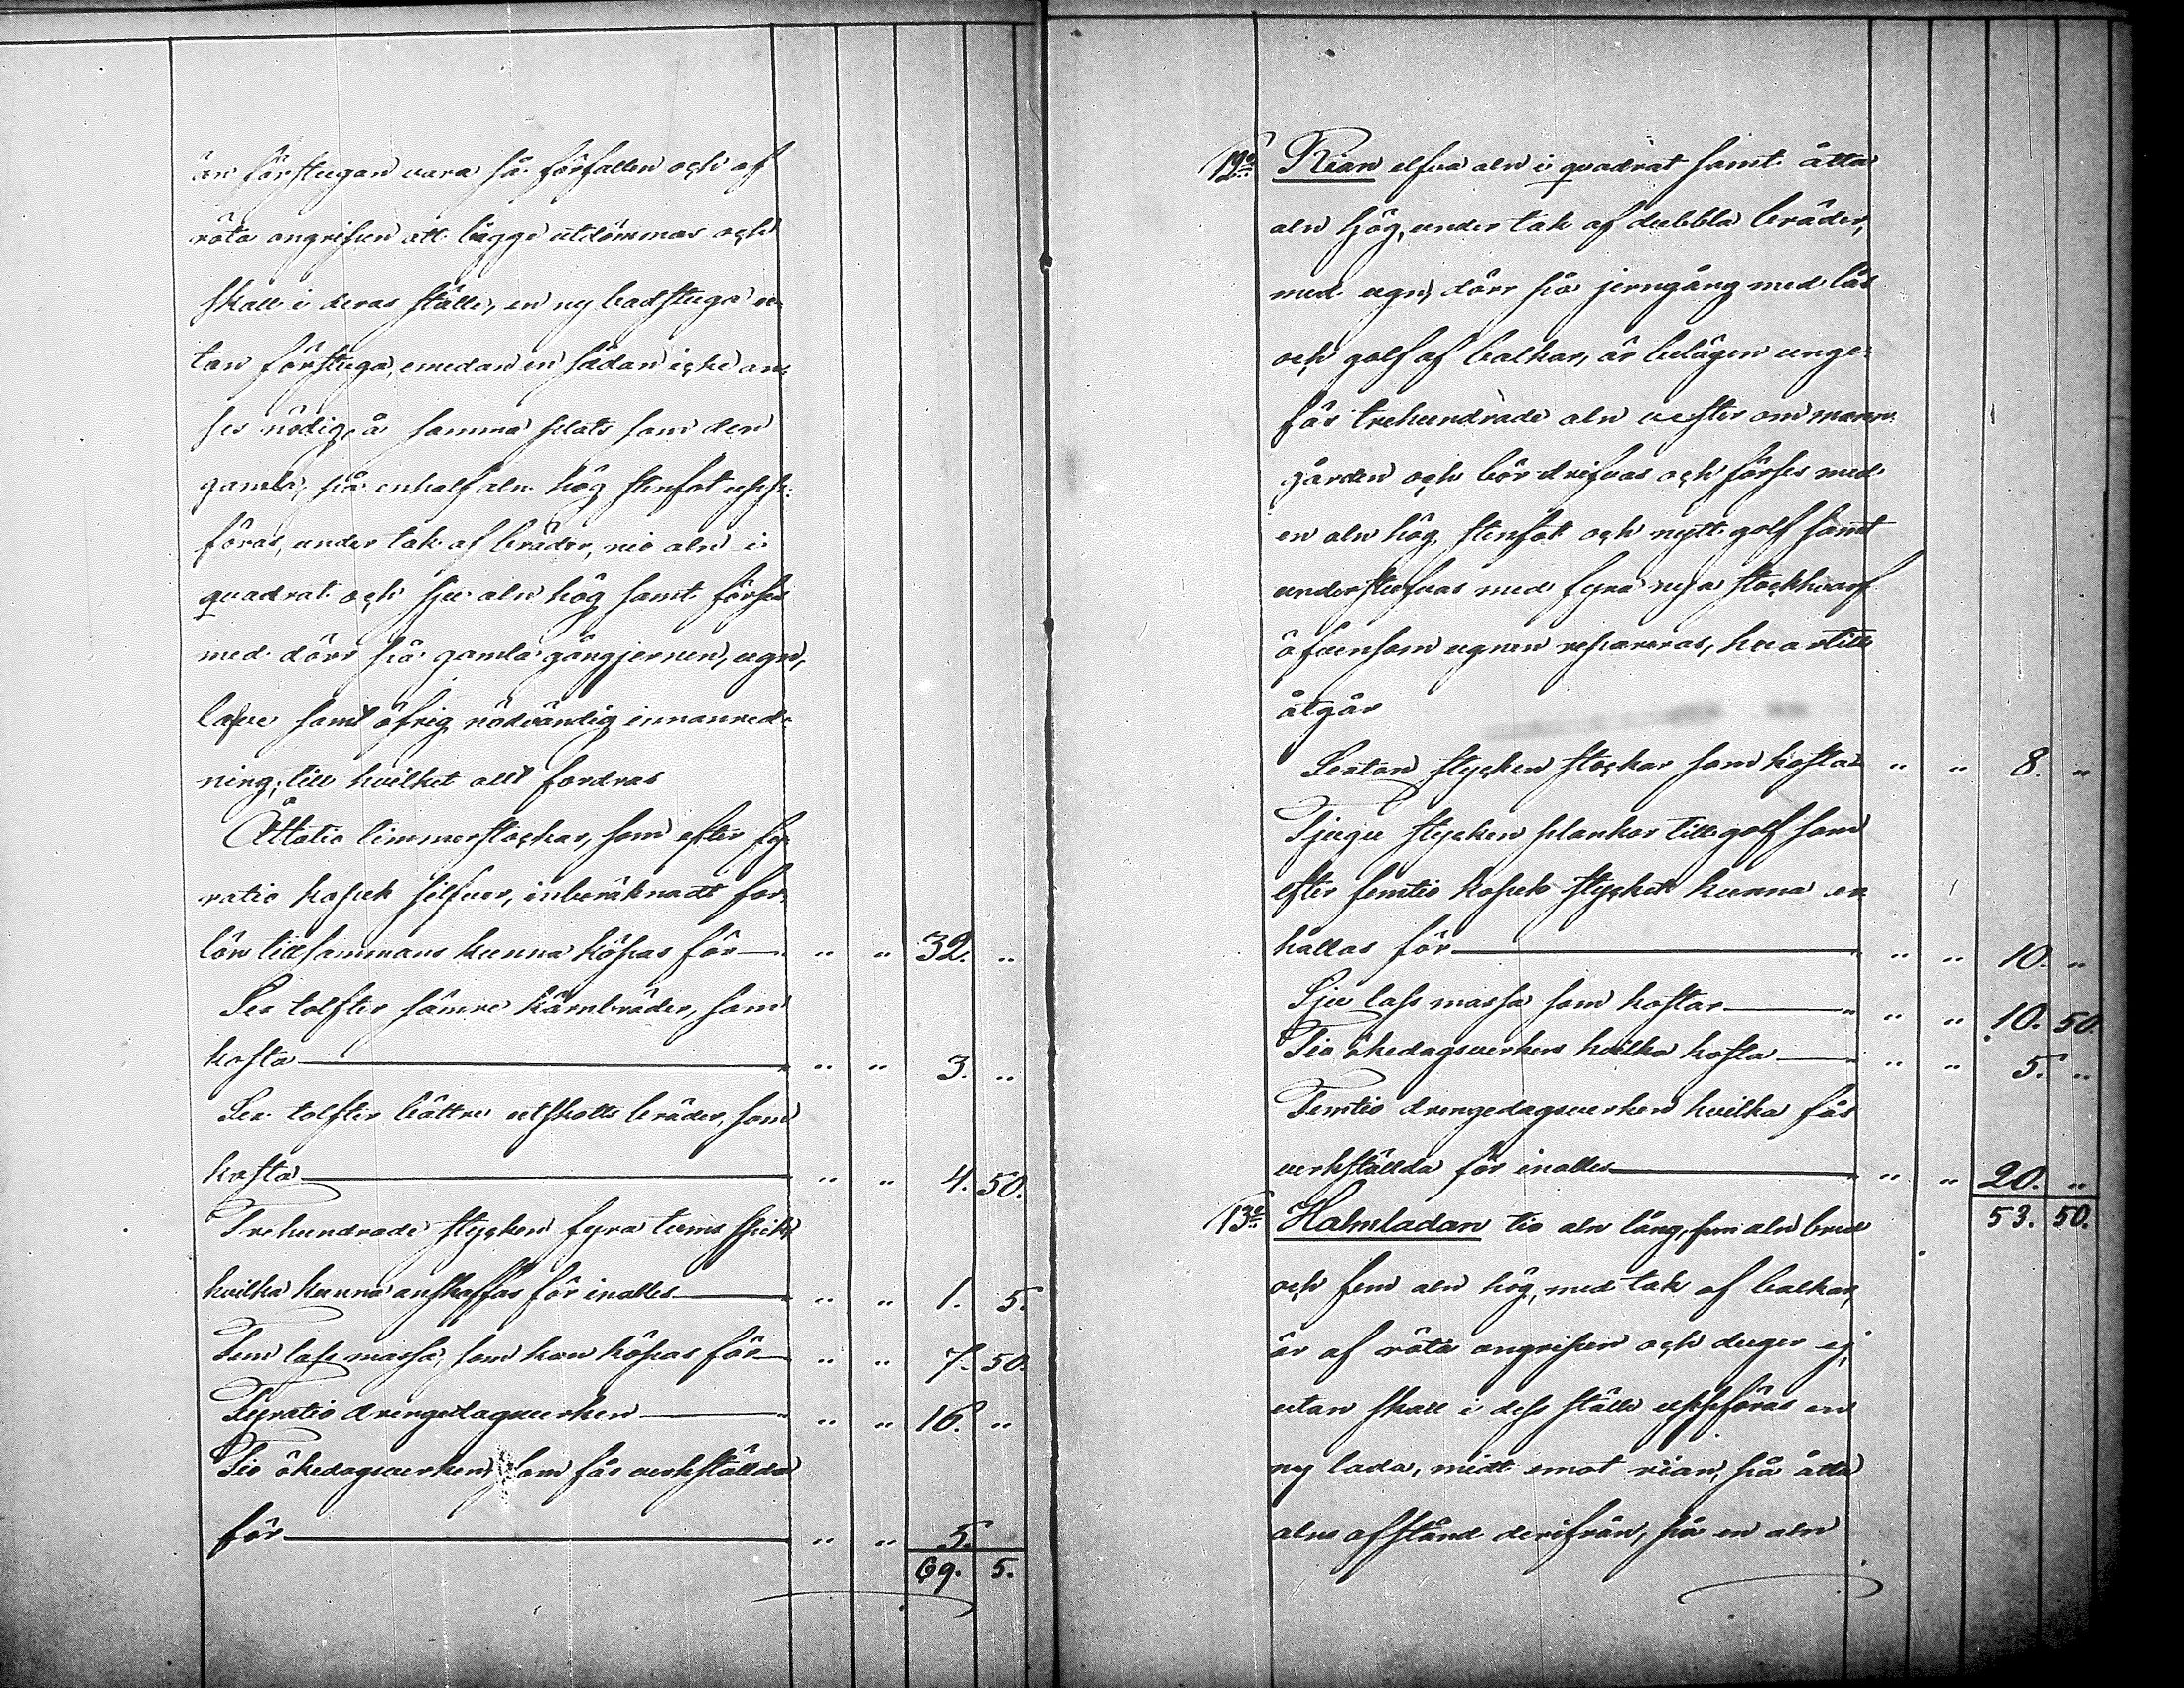 än förstugan vara så förfallen och af
röta angripen att bägge utdömmas och
skall i deras ställe, en ny badstuga u-
tan förstuga, emedan en sådan icke an-
ses nödig, å samma plats som den
gamla, på en half aln hög stenfot upp-
föras, under tak af bräder, nio aln i
quadrat och sju aln hög samt förses
med dörr på gamla gångjernen, ugn,
lafve samt öfrig nödvändig innanred-
ning, till hvilket allt fordras
Åttatio timmerstockar, som efter fy-
ratio kopek silfver, inberäknadt for-
lön tillsammans kunna köpas för — " " 32. "
Sex tolfter sämre kärnbräder, som
kosta — " " 3. "
Sex tolfter bättre utskotts bräder, som
kosta — " " 4. 50.
Trehundrade stycken fyra tums spik
hvilka kunna anskaffas för inalles — " " 1. 5.
Fem lass mossa, som kan köpas för — " " 7. 50.
Fyratio drengedagsverken — " " 16. "
Tio ökedagsverken, som fås verkställda
för — " " 5.
69. 5.
12o Rian elfva aln i quadrat samt åtta
aln hög, under tak af dubbla bräder,
med ugn, dörr på jerngång med lås
och golf af balkar, är belägen unge-
fär trehundrade aln vester om mann-
gården och bör drifvas och förses med
en aln hög stenfot och nytt golf samt
understufvas med fyra nya stockhvarf
äfvensom ugnen repareras, hvartill
åtgår
Sexton stycken stockar som kosta " " 8. "
Tjugu stycken plankor till golf som
efter femtio kopek stycket kunna er
hållas för — " " 10. "
Sju lass mossa som kostar — " " 10. 50.
Tio ökedagsverken hvilka kosta — " " 5. "
Femtio drengedagsverken hvilka fås
verkställda för inalles — " " 20. "
53. 50.
13o Halmladan tio aln lång, fem aln bred
och fem aln hög, med tak af balkar,
är af röta angripen och duger ej,
utan skall i dess ställe uppföras en
ny lada, midt emot rian, på åtta
alns afstånd derifrån, på en aln